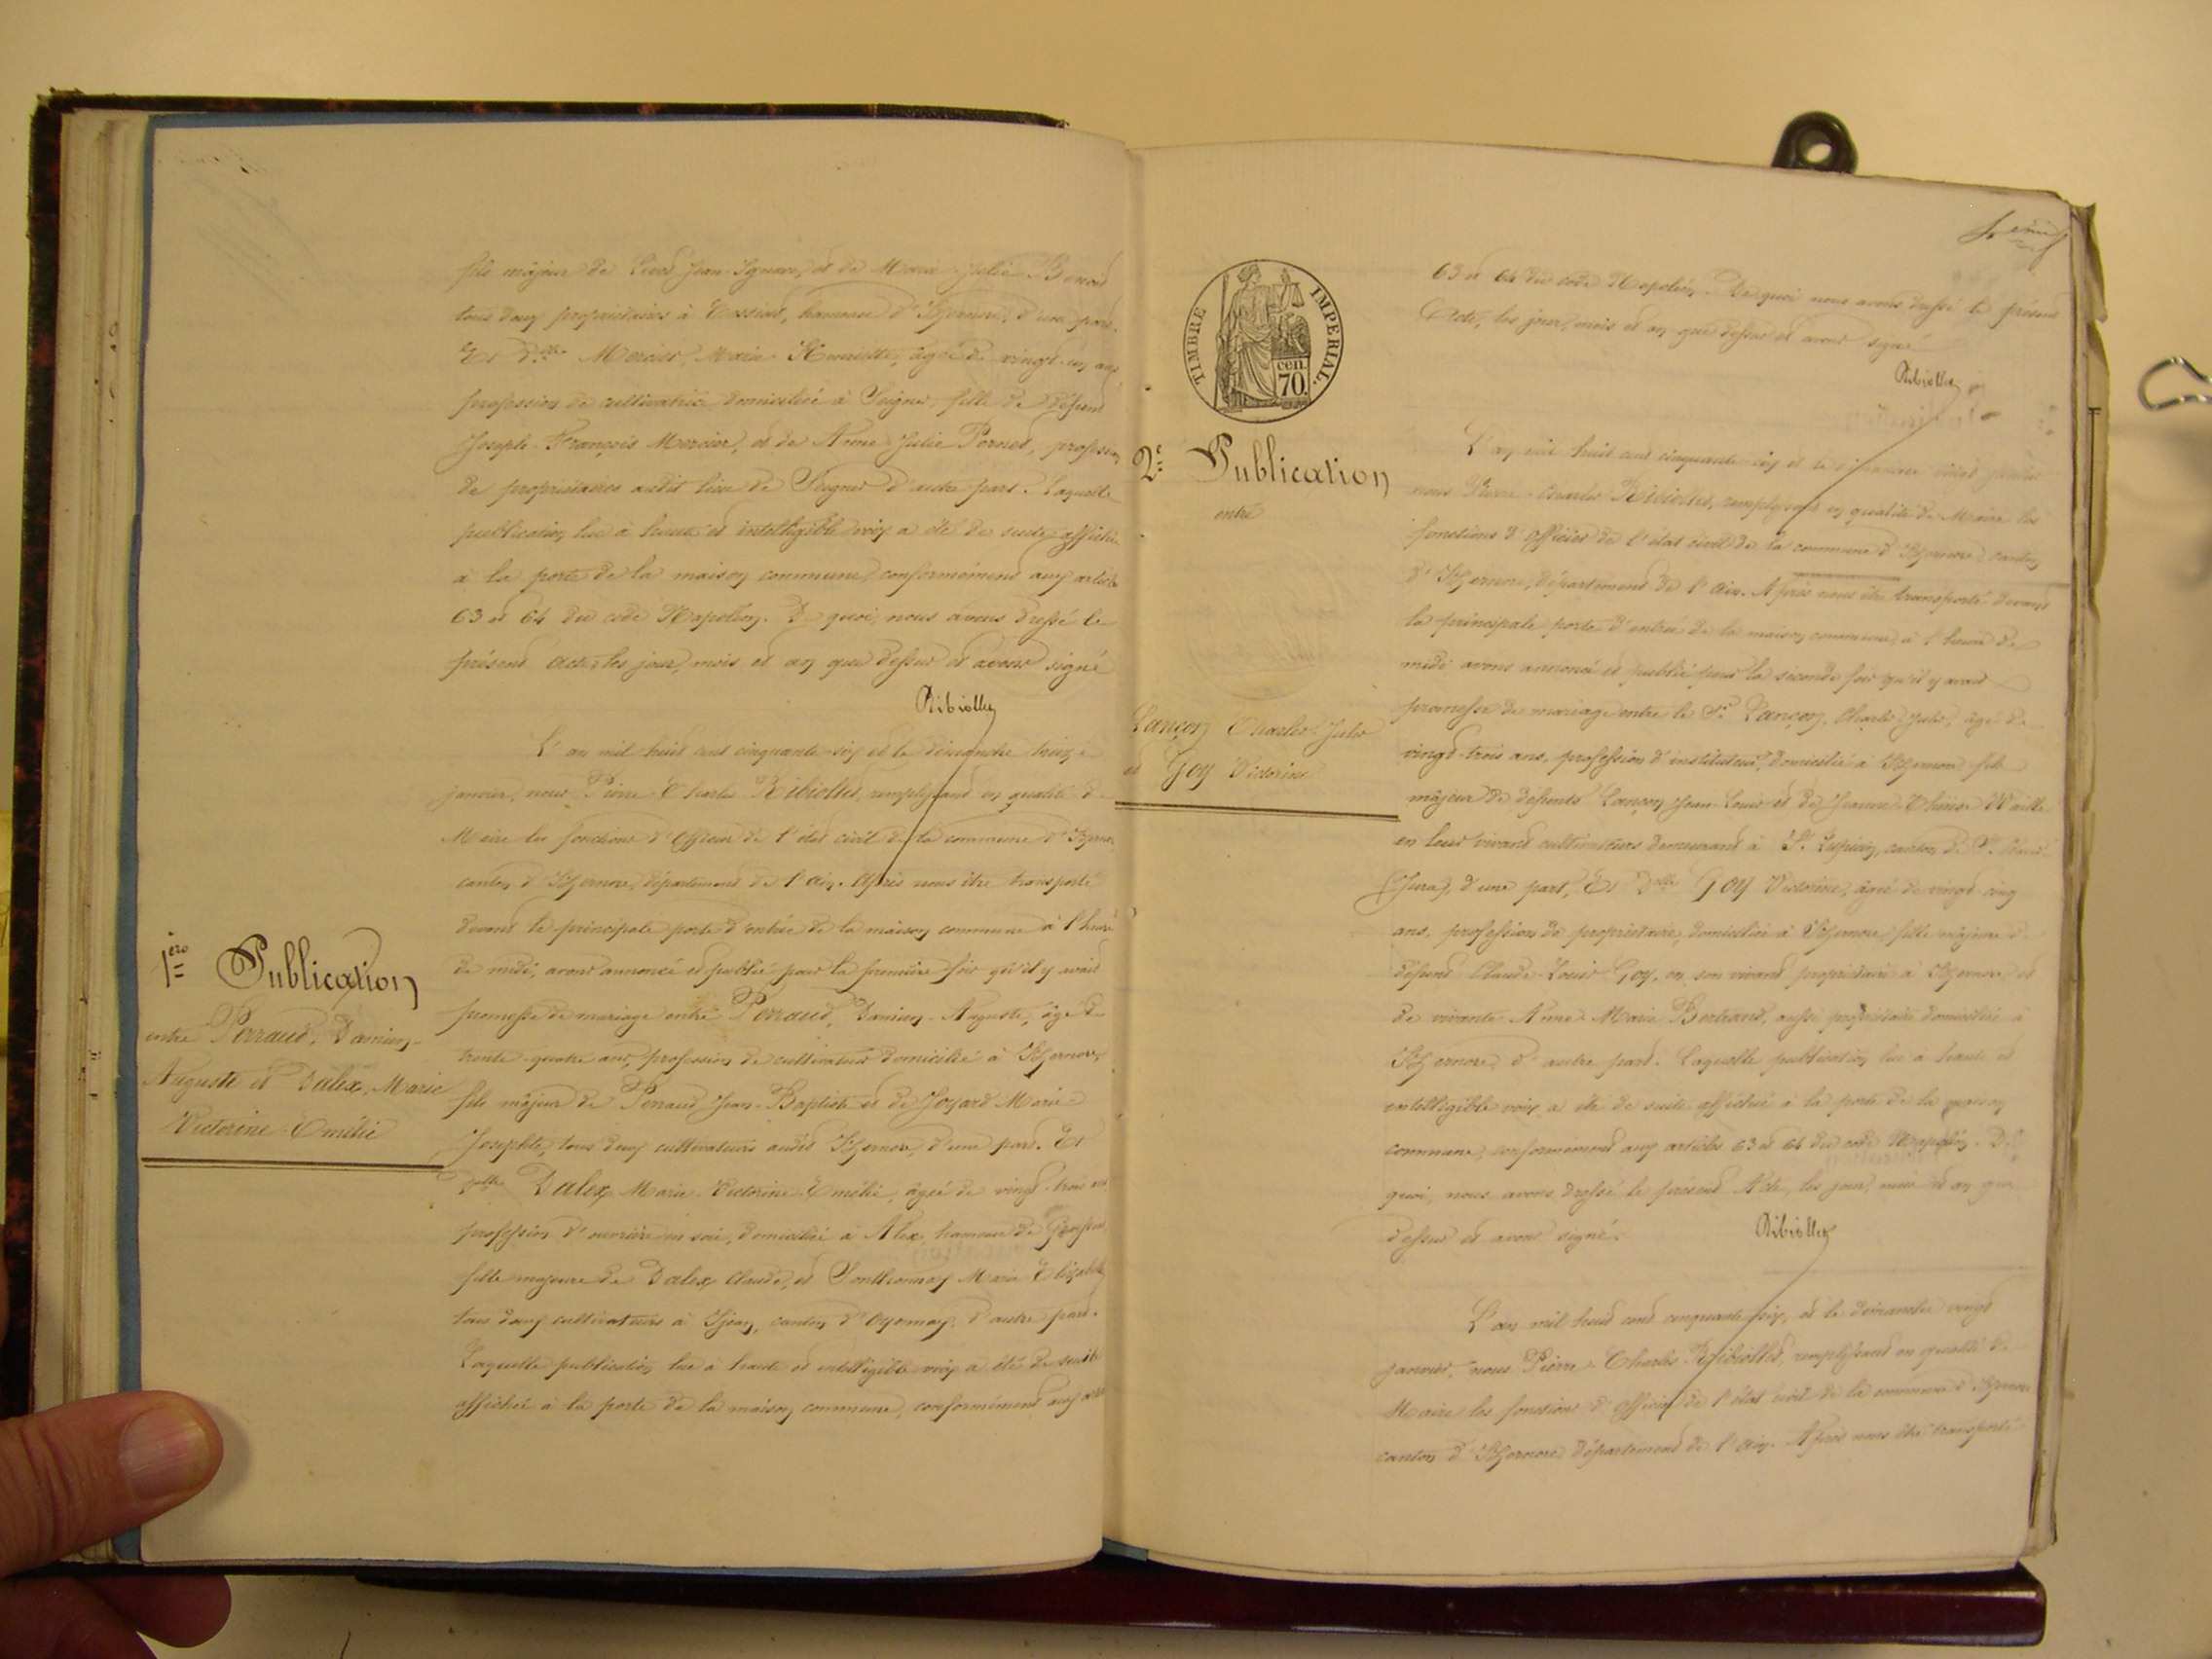 fils majeur de Jean Ignace, et de Marie Julie Benoit
tous deux propriétaires à Tassiat, hameau d'Izernore, d'une part.
Et Delle Mercier, Marie Henriette, âgée de vingt-un ans
profession de cultivatrice domiciliée à Peignes, fille de défunt
Joseph-François Mercier, et de Anne Julie Pernet, profession
de propriétaires audit lieu de d'autre part. Laquelle
publication lue à haute et intelligible voix a été de suite affichée
à la porte de la maison commune, conformément aux articles
63 et 64 du code Napoléon. De quoi, nous avons dressé le
présent acte, les jour, mois et an que dessus et avons signé
Ribiollet
L'an mil huit cent cinquante-six et le dimanche treize
janvier, nous Pierre Charles Ribiollet, remplissant en qualité de
Maire les fonctions d'officier de l'état civil de la commune d'Izernore
canton d'Izernore, département de l'Ain. Après nous être transporté
devant la principale porte d'entrée de la maison commune à l'heure
de midi, avons annoncé et publié pour la première fois qu'il y avait
1ère Publication
entre Perraud, Damien-
Auguste et Dalex, Marie
Victorine-Emélie
promesse de mariage entre Perraud, Damien-Auguste, âgé de
trente-quatre ans, profession de cultivateur domicilié à Izernore,
fils majeur de Perraud Jean-Baptiste et de Goyard Marie
Josephte, tous deux cultivateurs audit Izernore, d'une part. Et
Delle Dalex Marie-Victorine-Emélie, âgée de vingt-trois ans
profession d'ouvrière en soie, domiciliée à Alex, hameau de
fille majeure de Dalex Claude, et Sonthonnax Marie Elizabeth
tous deux cultivateurs à Izernore, canton d'Oyonnax, d'autre part.
Laquelle publication lue à haute et intelligible voix a été de suite
affichée à la porte de la maison commune, conformément aux articles
TIMBRE IMPERIAL.
cen.
70.
63 et 64 du code Napoléon. De quoi nous avons dressé le présent
Acte, les jour, mois et an que dessus et avons signé
Ribiollet
2e Publication
entre
Lançon Charles Jules
et Goy Victorine
L'an mil huit cent cinquante-six et le dimanche vingt janvier
nous Pierre-Charles Ribiollet, remplissant en qualité de Maire les
fonctions d'officier de l'état civil de la commune d'Izernore, canton
d'Izernore, département de l'Ain. Après nous être transporté devant
la principale porte d'entrée de la maison commune, à l'heure de
midi avons annoncé et publié pour la seconde fois qu'il y avait
promesse de mariage entre le Sr Lançon, Charles Jules, âgé de
vingt-trois ans, profession d'instituteur, domicilié à Izernore fils
majeur de défunts Lançon Jean-Louis et de Jeanne-Thérèse Waille
en leur vivant cultivateurs demeurant à St. Lupicin, canton de St. Claude
(Jura), d'une part, Et Delle Goy Victorine, âgée de vingt-cinq
ans, profession de propriétaire, domiciliée à Izernore, fille majeure de
défunt Claude-Louis Goy, en son vivant propriétaire à Izernore, et
de vivante Anne-Marie Bertrand, aussi propriétaire domiciliée à
Izernore, d'autre part. Laquelle publication lue à haute et
intelligible voix a été de suite affichée à la porte de la maison
commune, conformément aux articles 63 et 64 du code Napoléon. De
quoi, nous avons dressé le présent Acte, les jour, mois et an que
dessus et avons signé.
Ribiollet
L'an mil huit cent cinquante-six, et le dimanche vingt
janvier, nous Pierre-Charles Ribiollet, remplissant en qualité de
Maire les fonctions d'officier de l'état civil de la commune d'Izernore
canton d'Izernore département de l'Ain. Après nous être transporté